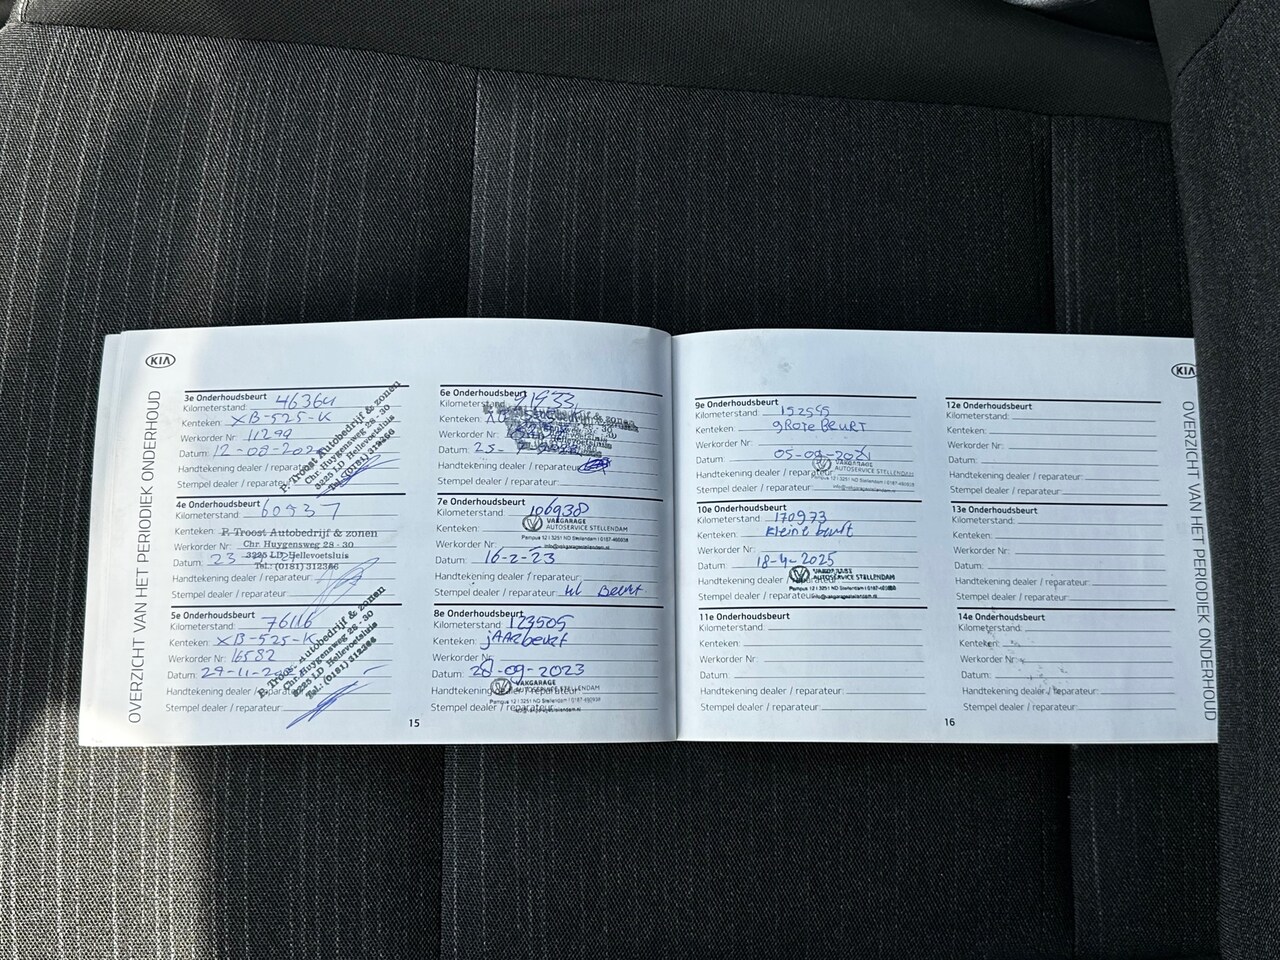 KIA
OVERZICHT VAN HET PERIODIEK ONDERHOUD
3e Onderhoudsbeurt
Kilometerstand: 46364
Kenteken: XB-525-K
Werkorder Nr: 11299
Datum: 12-08-202
Handtekening dealer / reparateur:
Stempel dealer / reparateur:
P. Troost Autobedrijf & zonen
Chr. Huygensweg 28 - 30
3225 LD Hellevoetsluis
Tel.: (0181) 312366
4e Onderhoudsbeurt
Kilometerstand: 60937
Kenteken:
Werkorder Nr:
Datum: 23
Handtekening dealer / reparateur:
Stempel dealer / reparateur:
P. Troost Autobedrijf & zonen
Chr. Huygensweg 28 - 30
3225 LD Hellevoetsluis
Tel.: (0181) 312366
5e Onderhoudsbeurt
Kilometerstand: 76116
Kenteken: XB-525-K
Werkorder Nr: 16582
Datum: 29-11-2
Handtekening dealer / reparateur:
Stempel dealer / reparateur:
P. Troost Autobedrijf & zonen
Chr. Huygensweg 28 - 30
3225 LD Hellevoetsluis
Tel.: (0181) 312366
6e Onderhoudsbeurt
Kilometerstand: 91933
Kenteken:
Werkorder Nr:
Datum:
Handtekening dealer / reparateur:
Stempel dealer / reparateur:
7e Onderhoudsbeurt
Kilometerstand: 106938
Kenteken:
VAKGARAGE
AUTOSERVICE STELLENDAM
Pampus 12 | 3251 ND Stellendam | 0187-490938
info@vakgaragestellendam.nl
Werkorder Nr:
Datum: 16-2-23
Handtekening dealer / reparateur:
Stempel dealer / reparateur: kl Beurt
8e Onderhoudsbeurt
Kilometerstand: 123505
Kenteken: jAARbeurt
Werkorder Nr:
Datum: 28-09-2023
Handtekening dealer / reparateur:
Stempel dealer / reparateur:
VAKGARAGE
AUTOSERVICE STELLENDAM
Pampus 12 | 3251 ND Stellendam | 0187-490938
info@vakgaragestellendam.nl
15
9e Onderhoudsbeurt
Kilometerstand: 152595
Kenteken: gROTE BEURT
Werkorder Nr:
Datum: 05-09-202
Handtekening dealer / reparateur:
Stempel dealer / reparateur:
VAKGARAGE
AUTOSERVICE STELLENDAM
Pampus 12 | 3251 ND Stellendam | 0187-490938
info@vakgaragestellendam.nl
10e Onderhoudsbeurt
Kilometerstand: 170973
Kenteken: Kleine beurt
Werkorder Nr:
Datum: 18-4-2025
Handtekening dealer / reparateur:
Stempel dealer / reparateur:
VAKGARAGE
AUTOSERVICE STELLENDAM
Pampus 12 | 3251 ND Stellendam | 0187-490938
info@vakgaragestellendam.nl
11e Onderhoudsbeurt
Kilometerstand:
Kenteken:
Werkorder Nr:
Datum:
Handtekening dealer / reparateur:
Stempel dealer / reparateur:
12e Onderhoudsbeurt
Kilometerstand:
Kenteken:
Werkorder Nr:
Datum:
Handtekening dealer / reparateur:
Stempel dealer / reparateur:
13e Onderhoudsbeurt
Kilometerstand:
Kenteken:
Werkorder Nr:
Datum:
Handtekening dealer / reparateur:
Stempel dealer / reparateur:
14e Onderhoudsbeurt
Kilometerstand:
Kenteken:
Werkorder Nr:
Datum:
Handtekening dealer / reparateur:
Stempel dealer / reparateur:
16
KIA
OVERZICHT VAN HET PERIODIEK ONDERHOUD